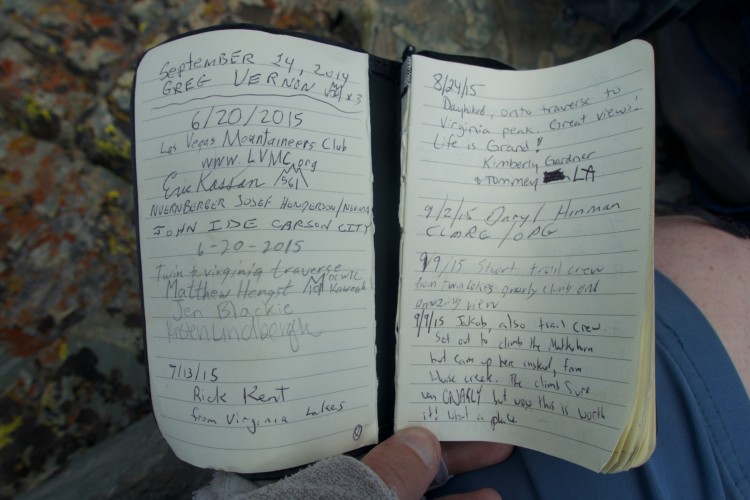 September 14, 2014
GREG VERNON x3
6/20/2015
Las Vegas Mountaineers Club
www.LVMC.org
Eric Kassan
NUERNBERGER JOSEF HENDERSON/NEVADA
JOHN IDE CARSON CITY
6-20-2015
Twin to virginia traverse
Matthew Hengst Kaweah
Jen Blackie
Kirsten Lindbergh
7/13/15
Rick Kent
from Virginia Lakes
8/24/15
Dayhiked, onto traverse to
Virginia peak. Great views!
Life is Grand!!
Kimberly Gardner
& Tommey LA
9/2/15 Daryl Hinman
CLMRG / OPG
9/9/15 Stuart trail crew
gnarly climb and
amazing view
9/9/15 Jakob, also trail crew
Set out to climb the Matterhorn
but came up here instead, from
creek. The climb sure
was GNARLY but wow this is worth
it! What a place